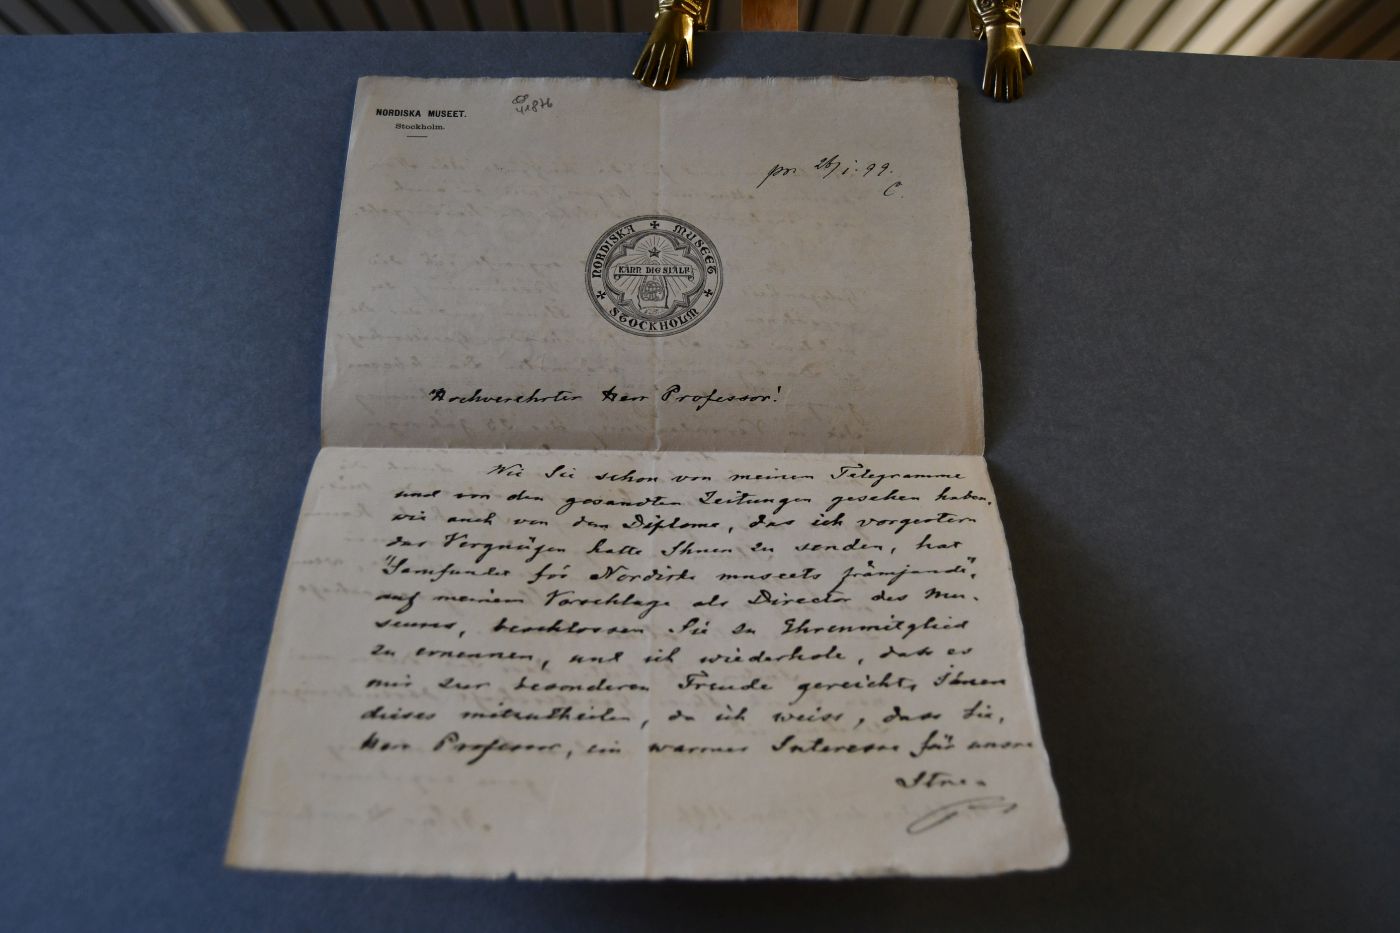 NORDISKA MUSEET.
Stockholm.
41876
pr. 26/1. 99.
C.
NORDISKA MUSEET
KÄNN DIG SJÄLF
STOCKHOLM
Hochverehrter Herr Professor!
Wie Sie schon von meinem Telegramme
und von den gesandten Zeitungen gesehen haben,
wie auch von dem Diplome, das ich vorgestern
das Vergnügen hatte Ihnen zu senden, hat
"Samfundet för Nordiska museets främjande",
auf meinem Vorschlage als Director des Mu-
seums, beschlossen Sie zu Ehrenmitglied
zu ernennen, und ich wiederhole, dass es
mir zur besonderen Freude gereicht, Ihnen
dieses mitzutheilen, da ich weiss, dass Sie,
Herr Professor, ein warmes Interesse für unsre